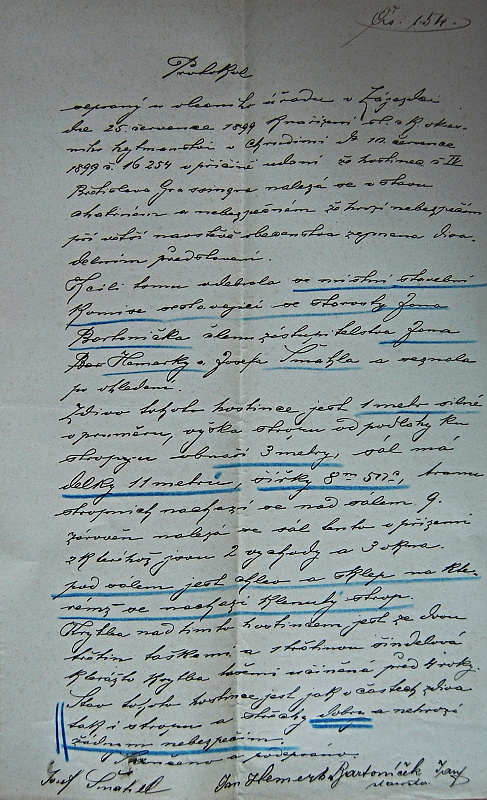 Čís. 154.
Protokol
sepsaný u obecního úřadu v Zájezdci
dne 25. července 1899 k nařízení sl. c. k. okres-
ního hejtmanství v Chrudimi dt 12. července
1899 č. 16254 v příčině udání že hostinec č. IV
Břetislava Grassingra nalezá se v stavu
chatrném a nebezpečném že hrozí nebezpečím
při větší návštěvě obecenstva zejmena diva-
delním představení.
Za tomu odebrala se místní stavební
Komise sestavující se starosty Jana
Bartoníčka členů zastupitelstva Jana
Hemerky a Josefa Šmahla a seznala
po ohledání
Zdivo tohoto hostince jest 1 metr silné
v průměru, výška stropu od podlahy ku
stropu obnáší 3 metry, sál má
délky 11 metrů, šířky 8 m 50 c, tramů
stropních nachází se nad sálem 9.
zároveň nalezá se sál tento v přízemí
z kteréhož jsou 2 východy a 3 okna.
pod sálem jest chlev a sklep na kte-
rémž se nachází klenutý strop.
Krytba nad tímto hostincem jest ze dvou
třetin taškami a třetinou šindelová
kterážto krytba učiněná před 4 roky.
Stav tohoto hostince jest jak v částech zdiva
tak i stropu a střechy dobrý a nehrozí
žádným nebezpečím.
Skončeno a podepsáno.
Josef Šmahel Jan Hemerka Bartoníček Jan
starosta